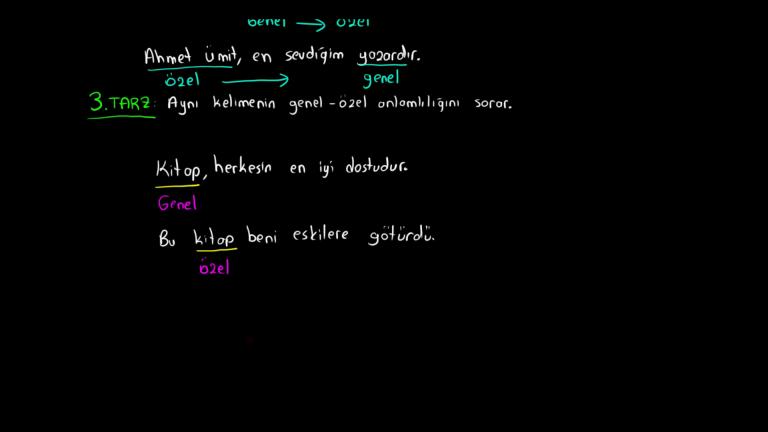 genel → özel
Ahmet Ümit, en sevdiğim yazardır.
özel → genel
3.TARZ: Aynı kelimenin genel-özel anlamlılığını sorar.
Kitap, herkesin en iyi dostudur.
Genel
Bu kitap beni eskilere götürdü.
özel